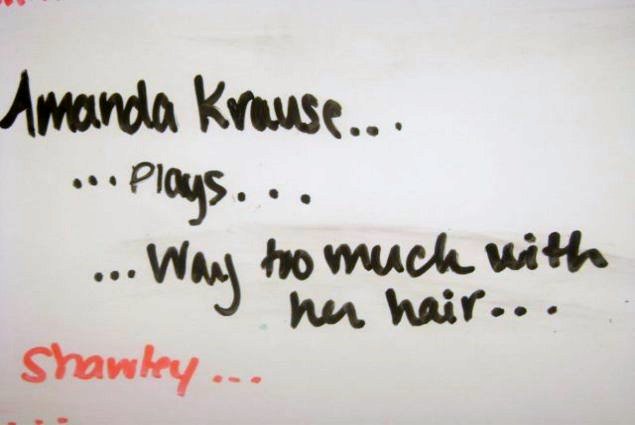 Amanda Krause... .
...Plays...
...Way too much with
her hair...
...